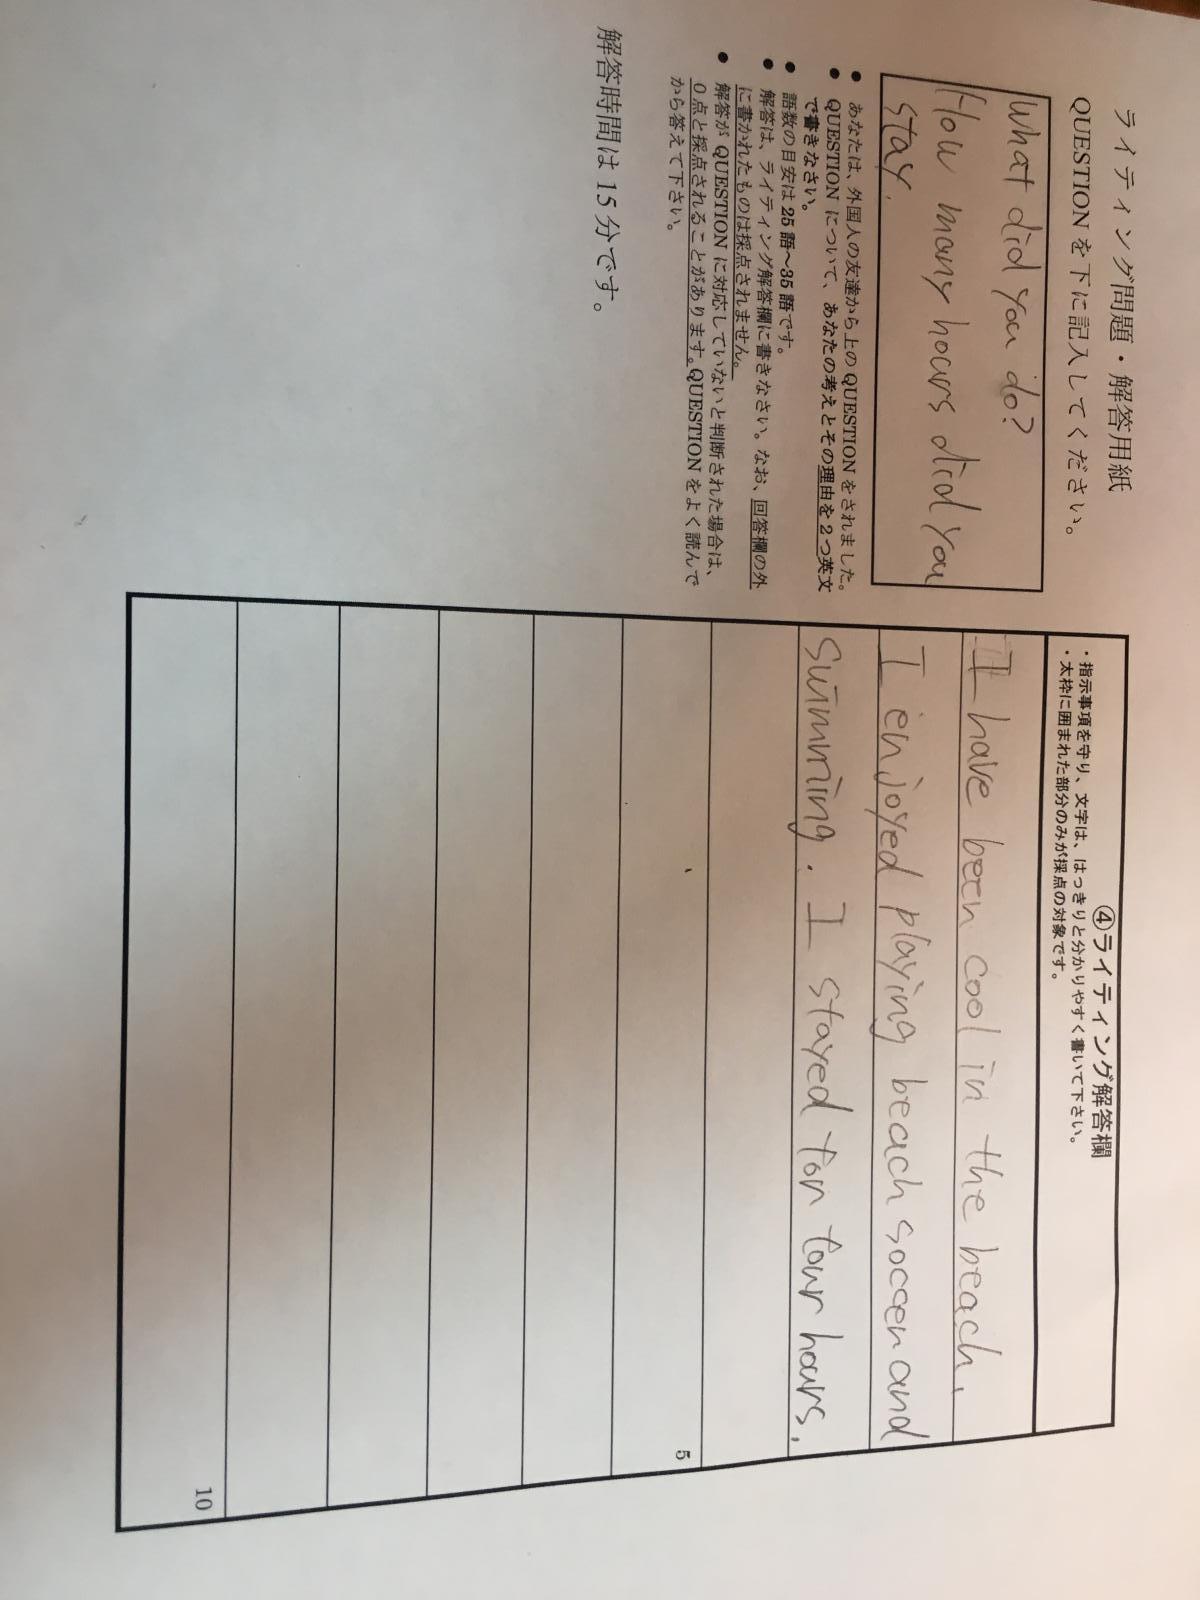 ライティング問題・解答用紙
QUESTION を下に記入してください。
What did you do?
How many hours did you
stay.
● あなたは、外国人の友達から上の QUESTION をされました。
● QUESTION について、あなたの考えとその理由を2つ英文
で書きなさい。
● 語数の目安は 25 語～35 語です。
● 解答は、ライティング解答欄に書きなさい。なお、回答欄の外
に書かれたものは採点されません。
● 解答が QUESTION に対応していないと判断された場合は、
０点と採点されることがあります。QUESTION をよく読んで
から答えて下さい。
解答時間は 15 分です。
④ライティング解答欄
・指示事項を守り、文字は、はっきりと分かりやすく書いて下さい。
・太枠に囲まれた部分のみが採点の対象です。
I have been cool in the beach.
I enjoyed playing beach soccer and
summing. I stayed for four hours.
5
10